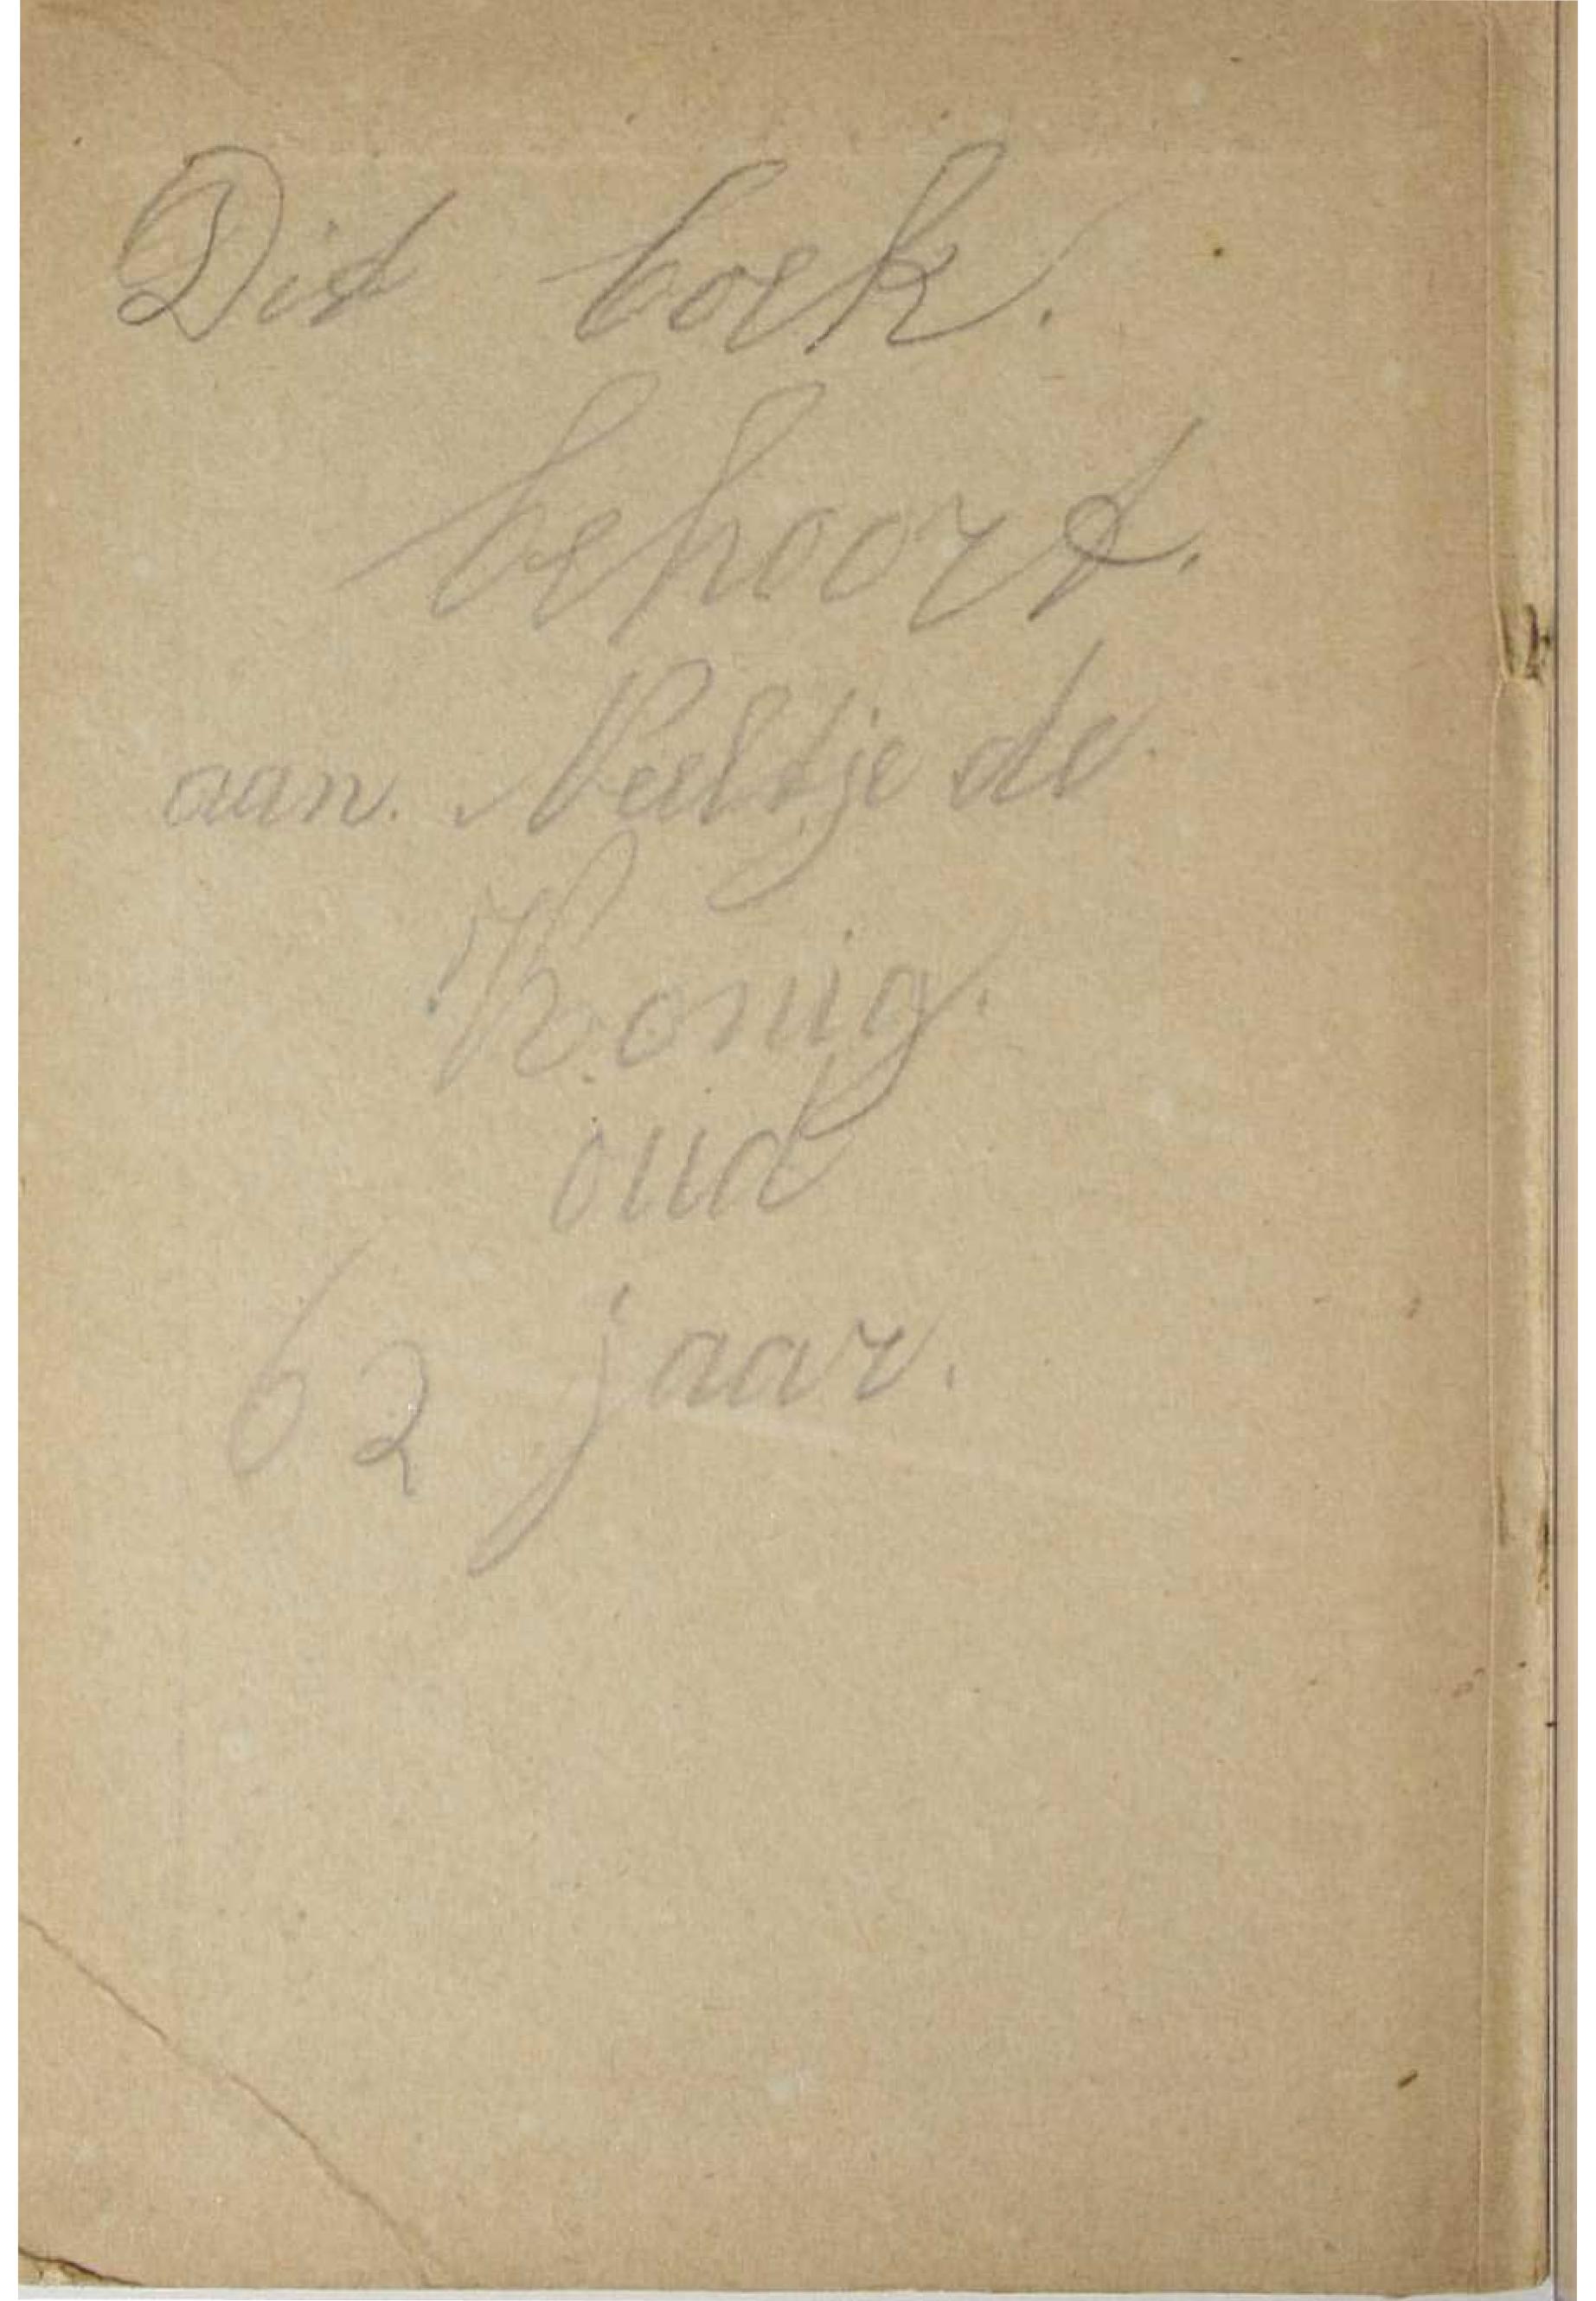 Dit boek.
behoort.
aan. Neeltje de
Konig.
oud
62 jaar.